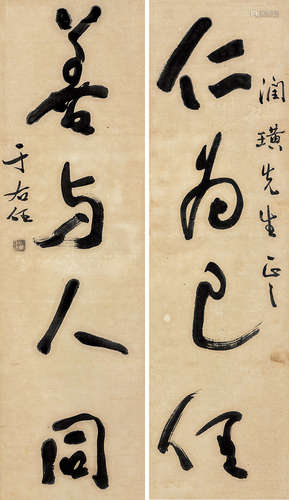 润璜先生正之
仁为己任
善与人同
于右任